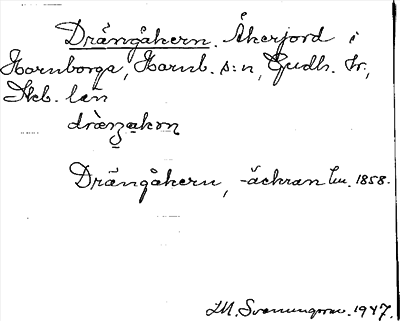 Drängåkern. Åkerjord i
Hornborga, Hornb. s:n, Gudh. hr,
Skb. län
Drängåkern, -äckran Lm. 1858.
J.M. Svanungsson. 1947.